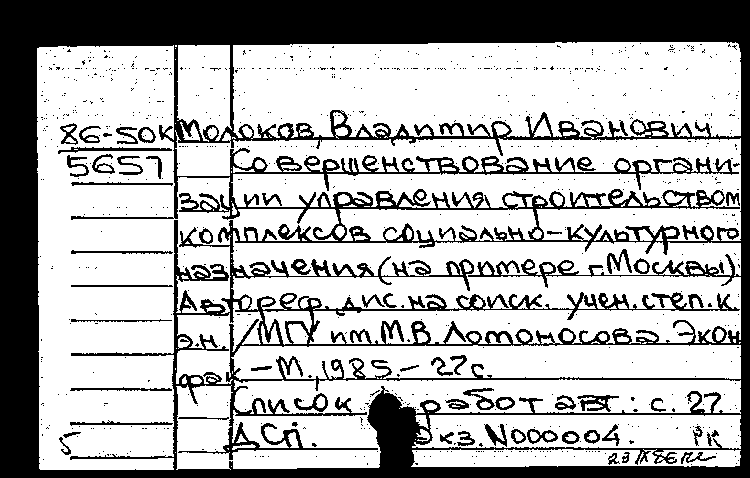 86-50К Молоков, Владимир Иванович
5657 Совершенствование органи-
зации управления строительством
комплексов социально-культурного
назначения (на примере г. Москвы).
Автореф. дис. на соиск. учен. степ. к.
э.н. /МГУ им. М.В. Ломоносова. Экон
фак — М., 1985. — 27 с.
Список работ авт.: с. 27.
5 ДСП. Экз. N000004. РК